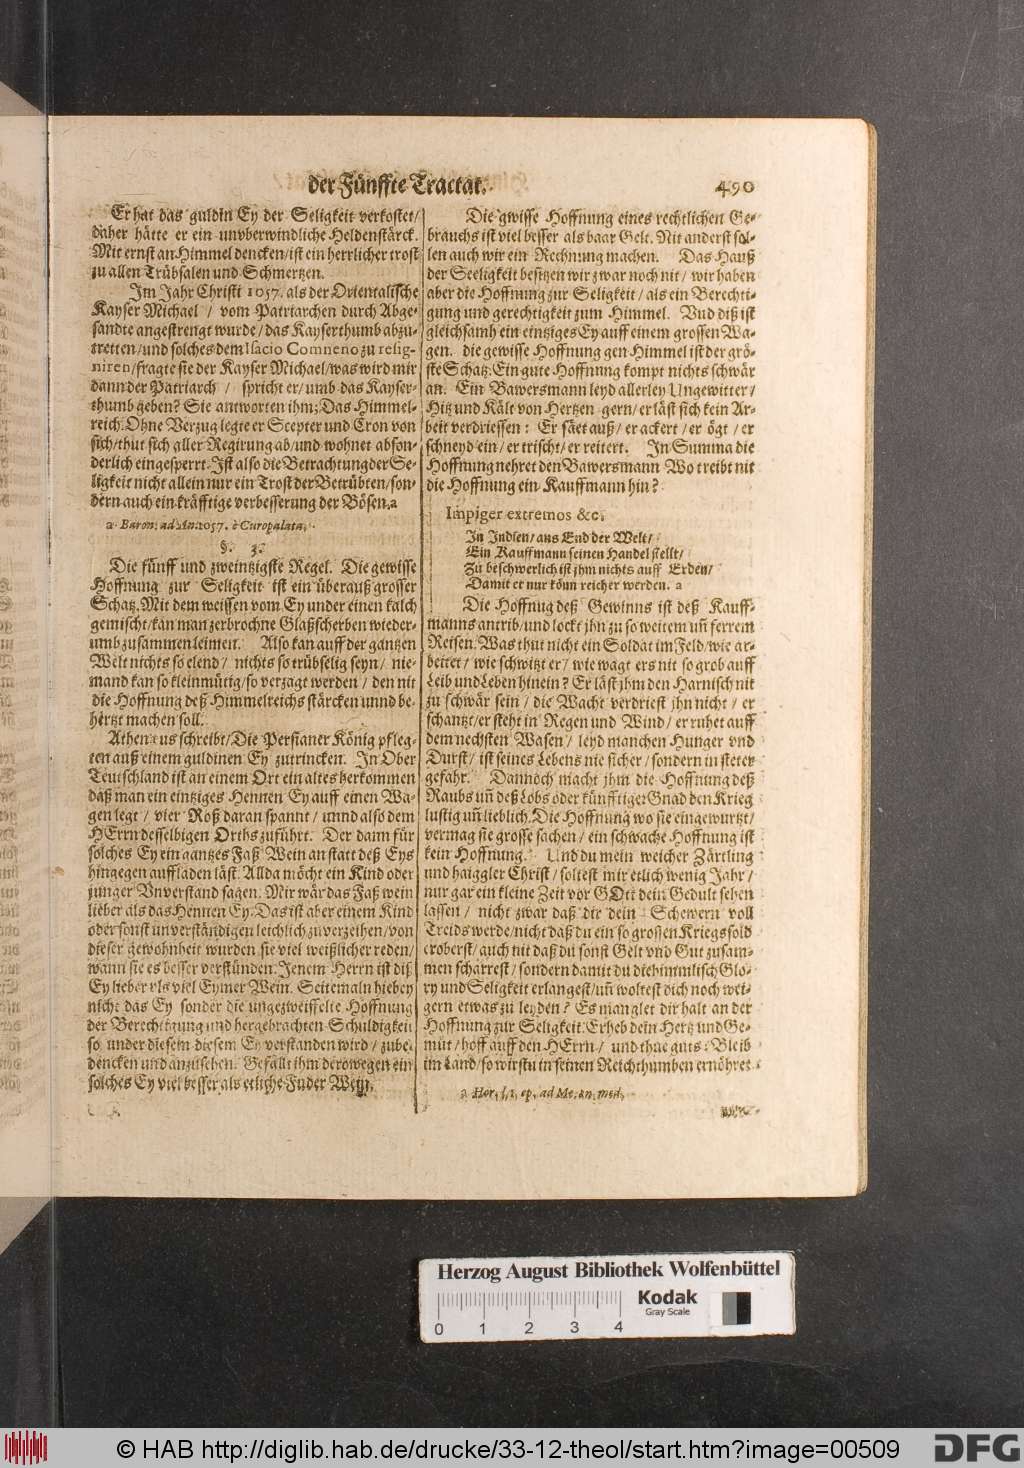 der Fünffte Tractat.
490
Er hat das guldin Ey der Seligkeit verkostet/
daher hätte er ein unvberwindliche Heldenstärck.
Mit ernst an Himmel dencken/ist ein herrlicher trost
zu allen Trübsalen und Schmertzen.
Im Jahr Christi 1057. als der Orientalische
Kayser Michael / vom Patriarchen durch Abge-
sandte angestrengt wurde/das Kayserthumb abzu-
tretten/und solches dem Isacio Comneno zu resig-
niren/fragte sie der Kayser Michael/was wird mir
dann der Patriarch / spricht er/umb das Kayser-
thumb geben? Sie antworten ihm; Das Himmel-
reich. Ohne Verzug legte er Scepter und Cron von
sich/thut sich aller Regirung ab/und wohnet abson-
derlich eingesperrt. Ist also die Betrachtung der Se-
ligkeit nicht allein nur ein Trost der Betrübten/son-
dern auch ein kräfftige verbesserung der Bösen. a
a Baron. ad An. 1057. è Curopalata.
§. 3.
Die fünff und zweintzigste Regel. Die gewisse
Hoffnung zur Seligkeit ist ein überauß grosser
Schatz. Mit dem weissen vom Ey under einen kalch
gemischt/kan man zerbrochne Glaßscherben wieder-
umb zusammen leimen. Also kan auff der gantzen
Welt nichts so elend / nichts so trübselig seyn / nie-
mand kan so kleinmütig/so verzagt werden / den nit
die Hoffnung deß Himmelreichs stärcken unnd be-
hertzt machen soll.
Athenæus schreibt/Die Persianer König pfleg-
ten auß einem guldinen Ey zutrincken. In Ober
Teutschland ist an einem Ort ein altes herkommen
daß man ein eintziges Hennen Ey auff einen Wa-
gen legt / vier Roß daran spannt / unnd also dem
HErrn desselbigen Orths zuführt. Der dann für
solches Ey ein gantzes Faß Wein an statt deß Eys
hingegen auffladen läst. Allda möcht ein Kind oder
junger Vnverstand sagen. Mir wär das Faß wein
lieber als das Hennen Ey. Das ist aber einem Kind
oder sonst unverständigen leichlich zu verzeihen/von
dieser gewohnheit wurden sie viel weißlicher reden/
wann sie es besser verstünden. Jenem Herrn ist diß
Ey lieber vls viel Eymer Wein. Seitemaln hiebey
nicht das Ey sonder die ungezweiffelte Hoffnung
der Berechtigung und hergebrachten Schuldigkeit
so under diesem diesem Ey verstanden wird / zube-
dencken und anzusehen. Gefällt ihm derowegen ein
solches Ey viel besser als etliche Fuder Wein.
Die gwisse Hoffnung eines rechtlichen Ge-
brauchs ist viel besser als baar Gelt. Nit anderst sol-
len auch wir ein Rechnung machen. Das Hauß
der Seeligkeit besitzen wir zwar noch nit / wir haben
aber die Hoffnung zur Seligkeit / als ein Berechti-
gung und gerechtigkeit zum Himmel. Vnd diß ist
gleichsamb ein eintziges Ey auff einem grossen Wa-
gen. die gewisse Hoffnung gen Himmel ist der grö-
ste Schatz. Ein gute Hoffnung kompt nichts schwär
an. Ein Bawersmann leyd allerley Ungewitter/
Hitz und Kält von Hertzen gern/er läst sich kein Ar-
beit verdriessen: Er säet auß / er ackert / er ögt / er
schneyd ein / er trischt / er reitert. In Summa die
Hoffnung nehret den Bawersmann Wo treibt nit
die Hoffnung ein Kauffmann hin?
Impiger extremos &c.
In Indien/ ans End der Welt/
Ein Kauffmann seinen Handel stellt/
Zu beschwerlich ist jhm nichts auff Erden/
Damit er nur könn reicher werden. a
Die Hoffnug deß Gewinns ist deß Kauff-
manns antrib/und lockt jhn zu so weitem uñ ferrem
Reisen. Was thut nicht ein Soldat im Feld/wie ar-
beitet / wie schwitzt er / wie wagt ers nit so grob auff
Leib und Leben hinein? Er läst jhm den Harnisch nit
zu schwär sein / die Wacht verdriest jhn nicht / er
schantzt/er steht in Regen und Wind / er ruhet auff
dem nechsten Wasen / leyd manchen Hunger vnd
Durst / ist seines Lebens nie sicher / sondern in steter
gefahr. Dannoch macht jhm die Hoffnung deß
Raubs uñ deß Lobs oder künfftiger Gnad den Krieg
lustig uñ lieblich. Die Hoffnung wo sie eingewurtzt/
vermag sie grosse sachen / ein schwache Hoffnung ist
kein Hoffnung. Und du mein weicher Zärtling
und haiggler Christ / soltest mir etlich wenig Jahr /
nur gar ein kleine Zeit vor GOtt dein Gedult sehen
lassen / nicht zwar daß dir dein Schewern voll
Treids werde/nicht daß du ein so grossen Kriegssold
eroberst/auch nit daß du sonst Gelt vnd Gut zusam-
men scharrest / sondern damit du die himmlisch Glo-
ry und Seligkeit erlangest/uñ woltest dich noch wei-
gern etwas zu leyden? Es manglet dir halt an der
Hoffnung zur Seligkeit. Erheb dein Hertz und Ge-
müt / hoff auff den HErrn / und thue guts: Bleib
im Land/so wirstu in seinen Reichthumben ernöhret
a Hor. l. 1. ep. ad Me. an. med.
Herzog August Bibliothek Wolfenbüttel
Kodak
Gray Scale
0 1 2 3 4
© HAB http://diglib.hab.de/drucke/33-12-theol/start.htm?image=00509
DFG